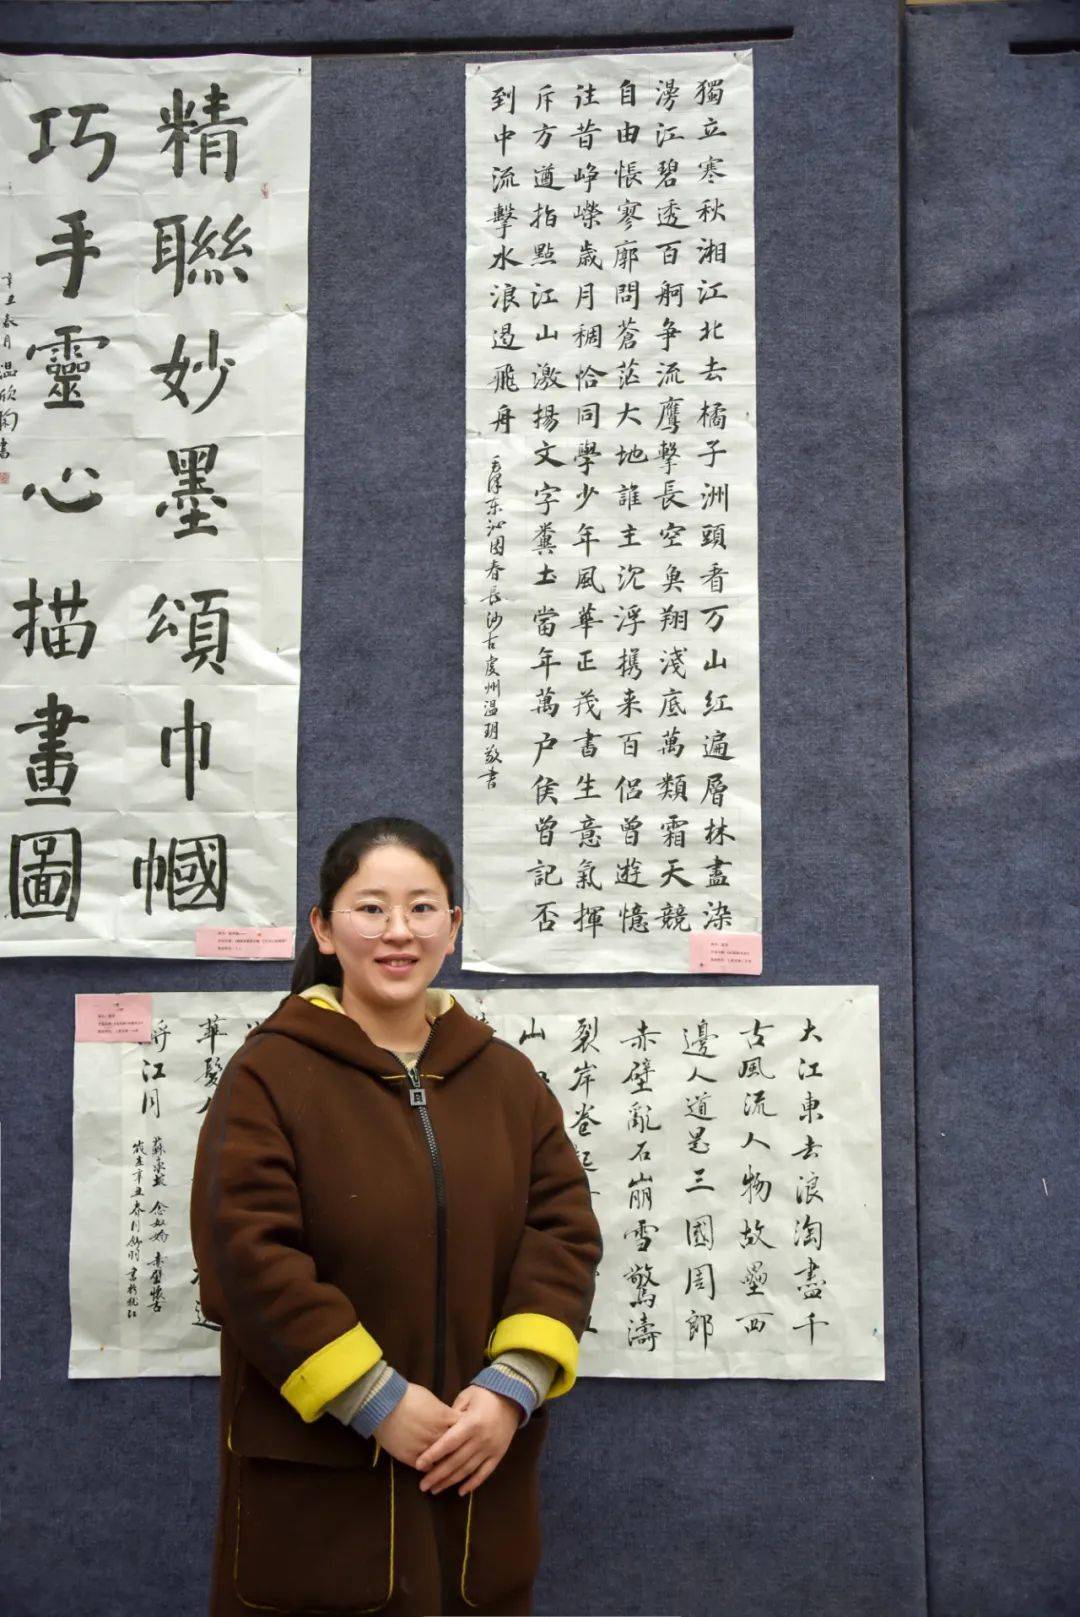 獨立寒秋湘江北去橘子洲頭看万山红遍層林盡染
漫江碧透百舸争流鹰擊長空魚翔淺底萬類霜天競
自由悵寥廓問蒼茫大地誰主沉浮携来百侣曾遊憶
往昔崢嶸歲月稠恰同學少年風華正茂書生意氣揮
斥方遒指點江山激揚文字糞土當年萬户侯曾記否
到中流擊水浪遏飛舟
毛澤东沁园春長沙古虔州温玥敬書
精聯妙墨頌巾幗
巧手靈心描畫圖
辛丑春月温欣書
大江東去浪淘盡千
古風流人物故壘西
邊人道是三國周郎
赤壁亂石崩雪驚濤
裂岸卷起
山
華髮
江月
蘇東坡念奴嬌赤壁懷古
歲在辛丑春月